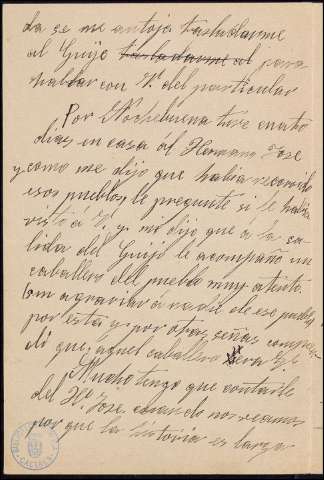 da se me antoja trasladarme
al Guijo trasladarme al para
hablar con V. del particular
Por Nochebuena tuve cuatro
dias en casa al Hermano Jose
y como me dijo que habia recorrido
esos pueblos, le pregunte si le habia
visto á V. y mi dijo que a la sa-
lida del Guijo le acompañó un
caballero del pueblo muy atento.
Sin agraviar á nadie de ese pueblo
por esta y por otras señas compren-
dí que aquel caballero era V.
Mucho tengo que contarle
del Hº Jose, cuando nos veamos
por que la historia es larga
CACERES